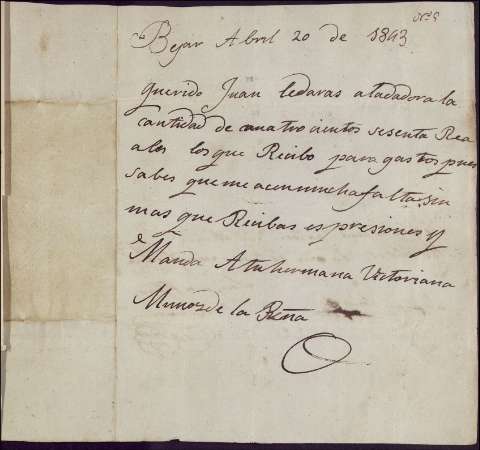 Nº 9
Bejar Abril 20 de 1843
querido Juan ledaras a ladadora la
cantidad de cuatrocientos sesenta Rea
ales los que Recibo para gastos pues
sabes que me acen mucha falta. sin
mas que Recibas espresiones y
Manda A tu hermana Victoriana
Munoz de la Peña